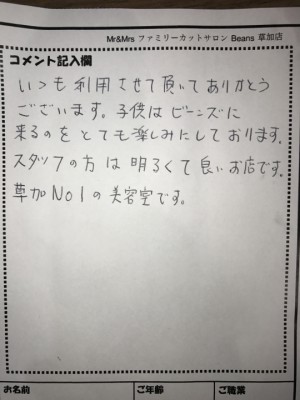 Mr&Mrs ファミリーカットサロン Beans 草加店
コメント記入欄
いつも利用させて頂いてありがとう
ございます。子供はビーンズに
来るのをとても楽しみにしております。
スタッフの方は明るくて良いお店です。
草加No1の美容室です。
お名前 ご年齢 ご職業